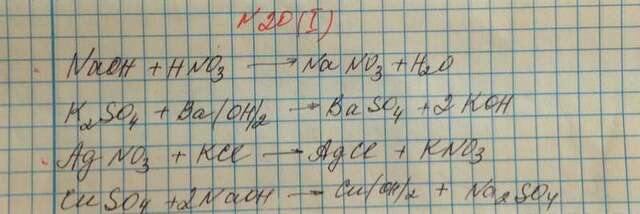 N20(I)
NaOH + HNO₃ → NaNO₃ + H₂O
K₂SO₄ + Ba(OH)₂ → BaSO₄ + 2KOH
AgNO₃ + KCl → AgCl + KNO₃
CuSO₄ + 2NaOH → Cu(OH)₂ + Na₂SO₄